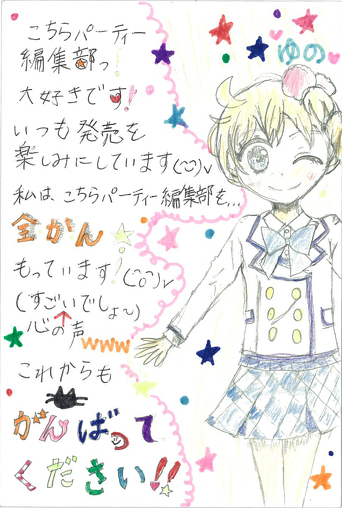 こちらパーティー
編集部っ
大好きです!
いつも発売を
楽しみにしています(^^)v
私は こちらパーティー編集部を…
全かん
もっています!(^o^)v
(すごいでしょ〜)
↑
心の声
www
これからも
がんばって
ください!!
ゆの